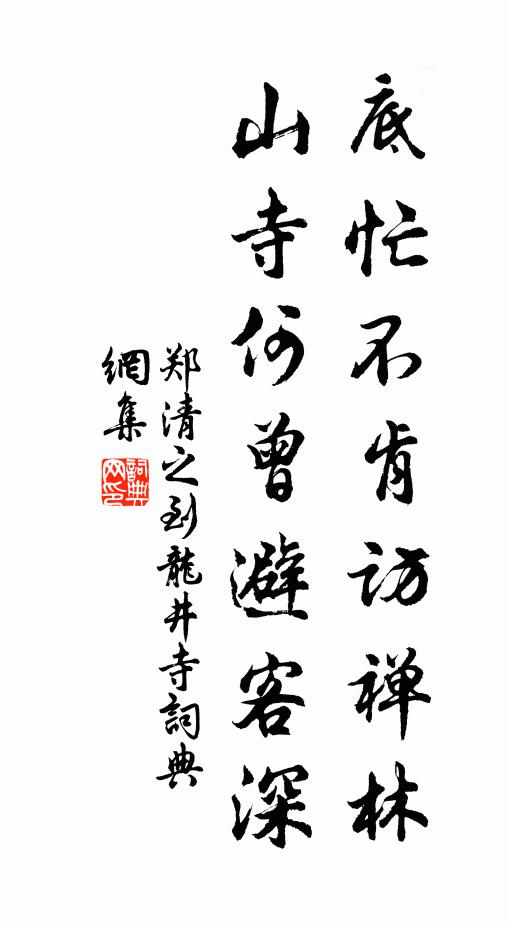 底忙不肯访禅林
山寺何曾避客深
郑清之到龍井寺詞典
網集
詞典网印